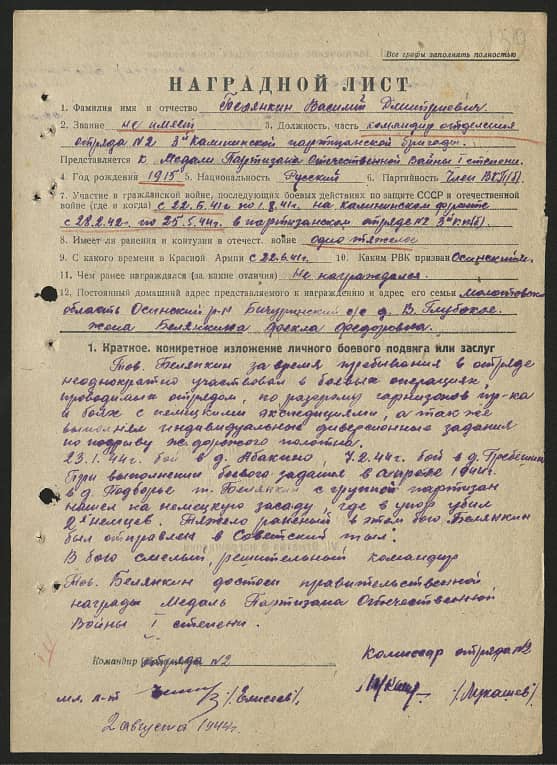 Все графы заполнять полностью
НАГРАДНОЙ ЛИСТ
1. Фамилия имя и отчество Белянкин Василий Дмитриевич
2. Звание не имеет 3. Должность, часть командир отделения
отряда №2 3й Калининской партизанской бригады.
Представляется к Медали Партизана Отечественной Войны I степени.
4. Год рождения 1915 5. Национальность Русский 6. Партийность Член ВКП(б)
7. Участие в гражданской войне, последующих боевых действиях по защите СССР и отечественной
войне (где и когда) с 22.6.41г по 1.8.41г. на калининском фронте
с 28.2.42г. по 25.5.44г. в партизанском отряде №2 3й к.п.(б).
8. Имеет ли ранения и контузии в отечест. войне одно тяжелое
9. С какого времени в Красной Армии с 22.6.41г. 10. Каким РВК призван Осинским.
11. Чем ранее награждался (за какие отличия) Не награждался.
12. Постоянный домашний адрес представляемого к награждению и адрес его семьи Молотовская
область Осинский р-н с/с д. В. Глубокое.
жена Белянкина Фекла Федоровна.
1. Краткое, конкретное изложение личного боевого подвига или заслуг
Тов. Белянкин за время пребывания в отряде
неоднократно участвовал в боевых операциях,
проводимых отрядом, по разгрому гарнизонов пр-ка
и боях с немецкими экспедициями, а так же
выполнял индивидуальные диверсионные задания
по подрыву ж.дорожного полотна.
23.1.44г. бой в д. Абакино, 7.2.44г. бой в д.
При выполнении боевого задания в апреле 1944г.
в д. Подворье т. Белянкин с группой партизан
нашел на немецкую засаду, где в упор убил
2х немцев. Тяжело раненый в этом бою Белянкин
был отправлен в Советский тыл.
В бою смелый, решительный командир
Тов. Белянкин достоин правительственной
награды Медаль Партизана Отечественной
Войны I степени.
Командир отряда №2 Комиссар отряда №2
мл. л-т /Елисеев/. /Лукашев/
2 августа 1944г.